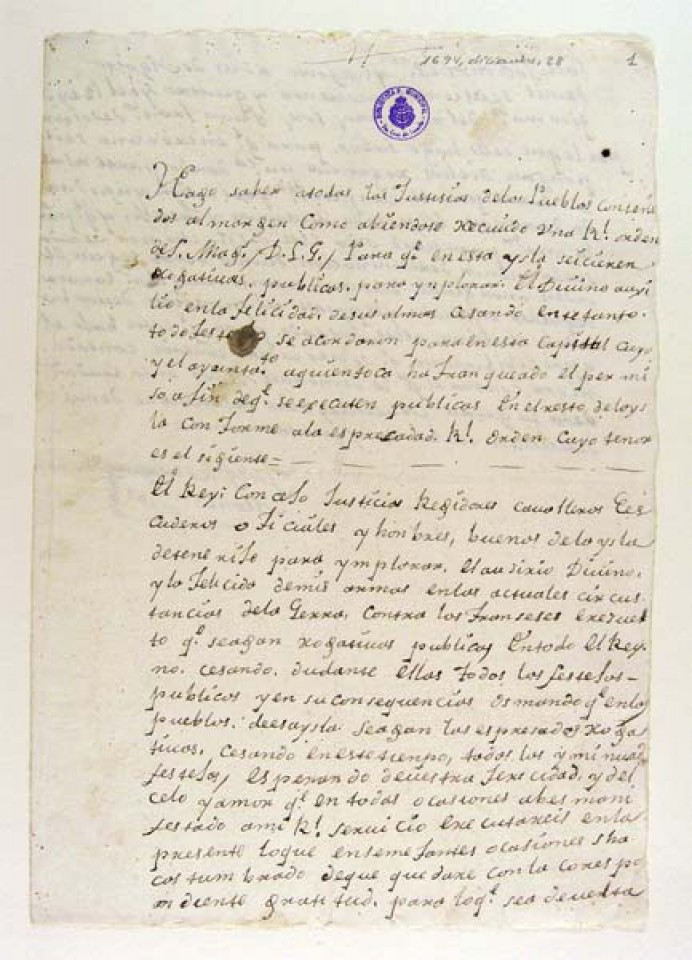 1694, diciembre, 28
1
BIBLIOTECA MUNICIPAL
Hago saber atodos los Justisias delos Pueblos conteni
dos almargen Como abiendose Recuido Vna Rl. orden
de S. Mag. / D. L. G. / Para qe. en esta ysla se icieren
Rogativas, publicas, para ynplorar. El Diuino auxi
lio enla felicidad, de sus almas Cesando Entretanto.
todo se acordaron para en esta Capital Cuyo
y el ayuntato. aquien toca ha Franqueado el per mi
so, a fin de qe. se executen publicas En el resto, de la ys
la Con Forme ala espresadad. Rl. Orden Cuyo tenor
es el sigiente =
El Rey: Consejo Justicias Regidores cavalleros Es
cuderos o Ficiales y hombres, buenos de la ysla
de tenerife para ymplorar. El ausirio Diuino,
y la Felicida de mis armas en las actuales circus
tancias dela Gerra, Contra los Franseses e resuel
to qe. se agan Rogativas publicas En todo el Rey
no. cesando. durante Ellas todos los festejos
publicos y en su consequencias os mando qe. en los
pueblos. de esa ysla se agan las espresadas Roga
tivas, cesando en este tiempo, todos los
festejos, esperando de vuestra y del
celo y amor qe. en todas ocasiones abes mani
festado a mi Rl. seruicio Executareis en la
presente lo que en semejantes ocasiones s ha
costumbrado de que quedare con la corespo
ndiente gratitud. para lo qe. sea de vuestra